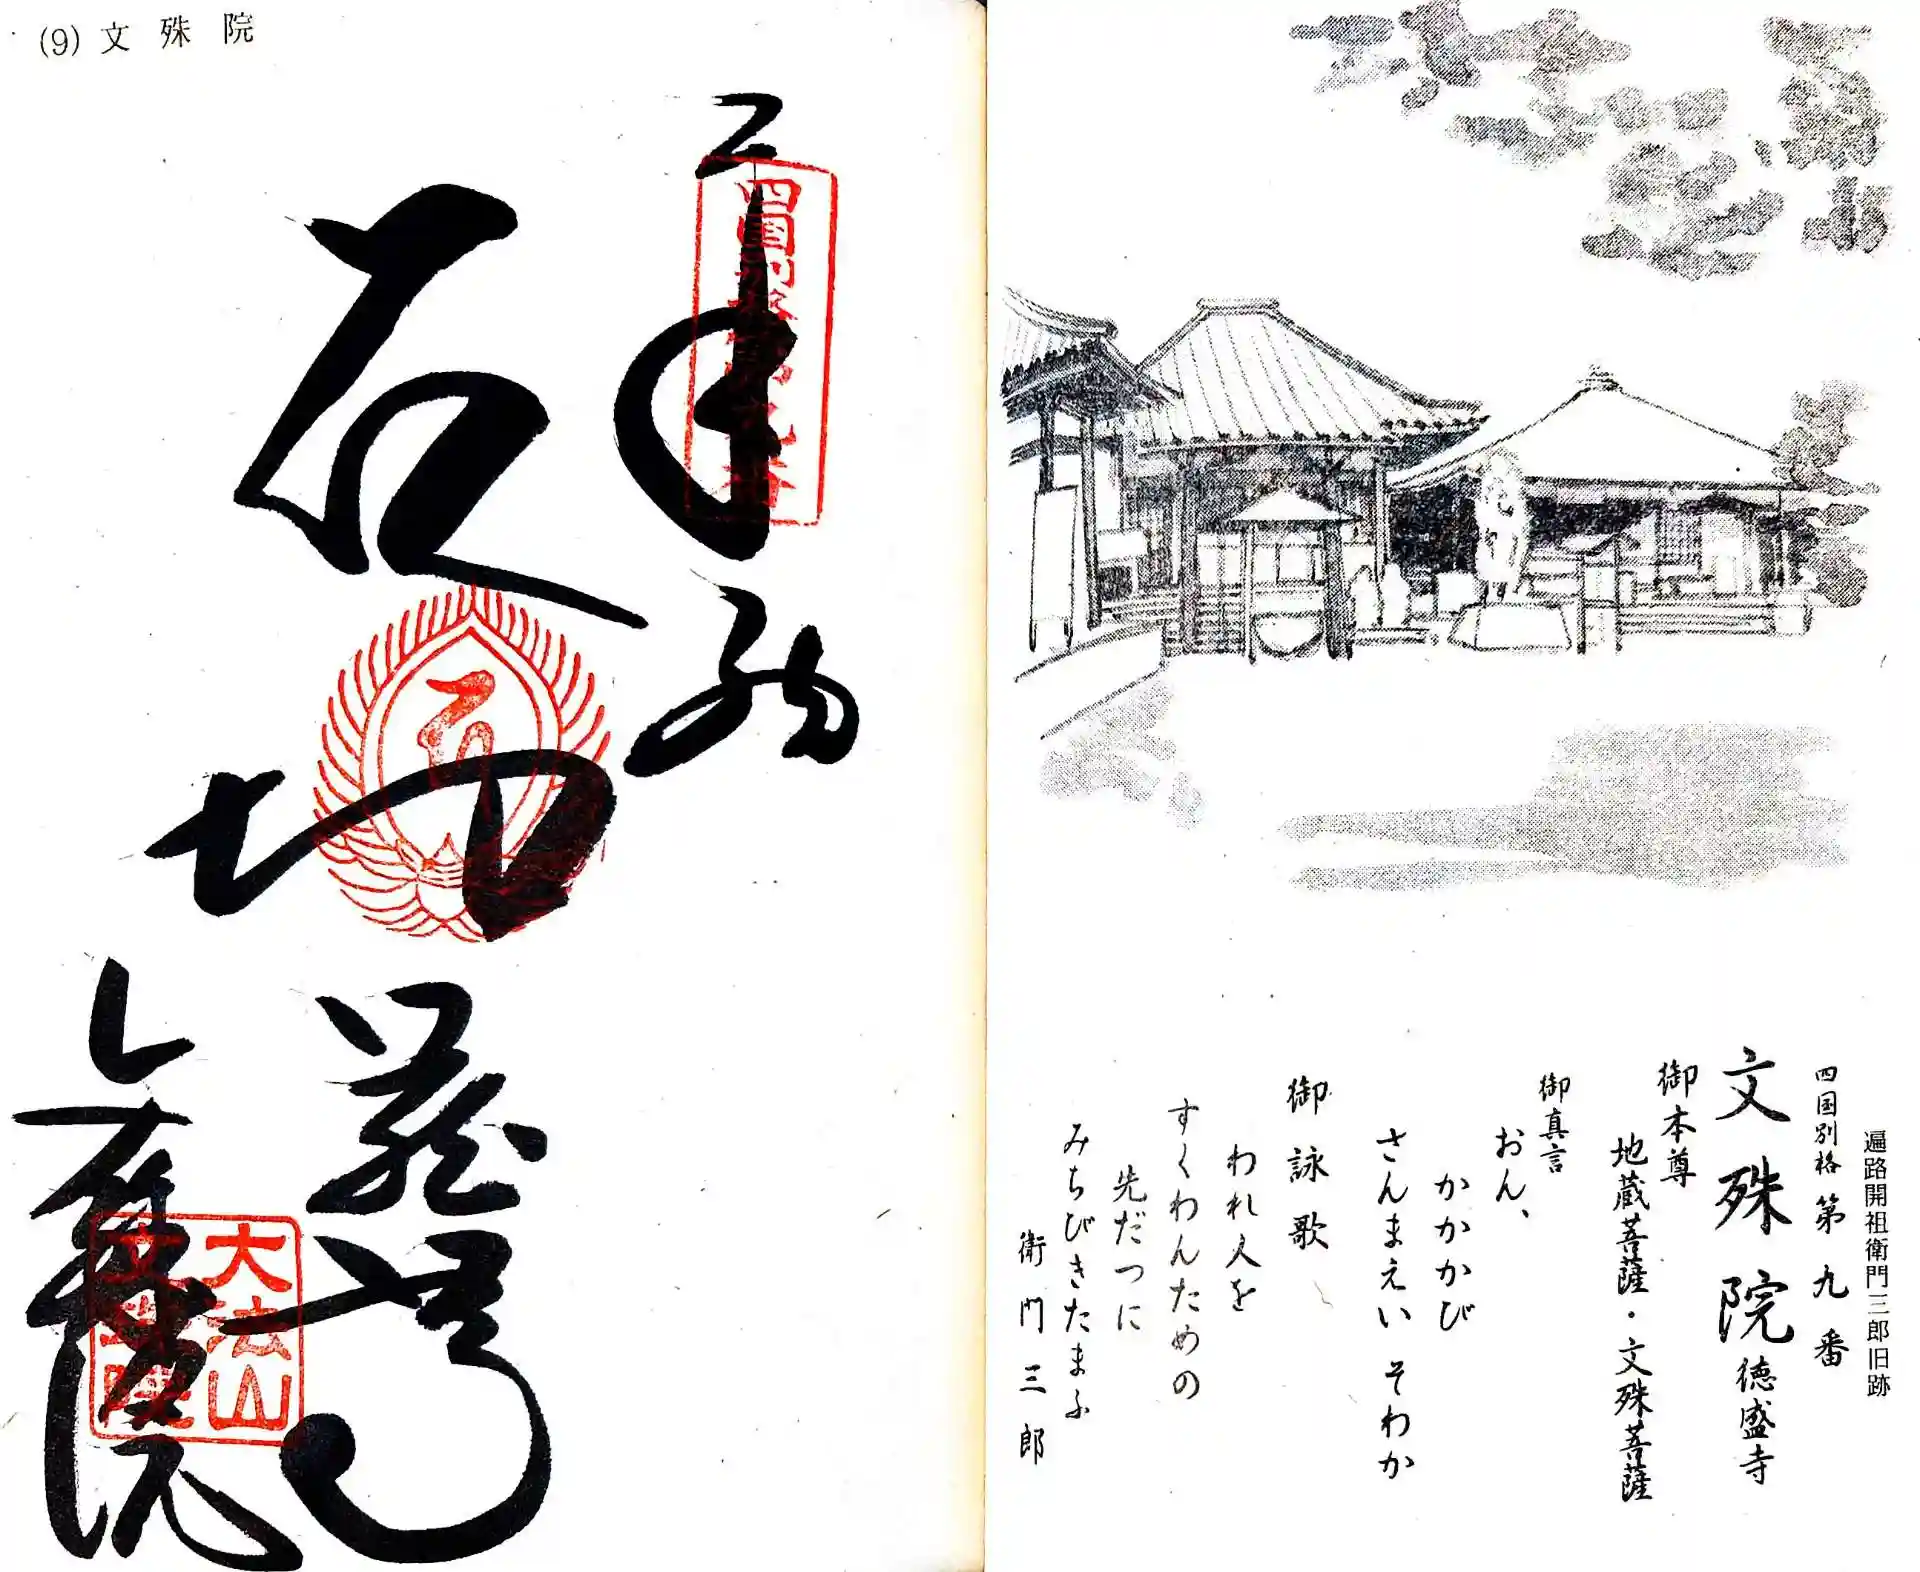 (9) 文殊院
奉納
四国別格第九番
地蔵尊
文殊院
大法山
文殊院
遍路開祖衛門三郎旧跡
四国別格 第九番
文殊院 徳盛寺
御本尊
地蔵菩薩・文殊菩薩
御真言
おん、
かかかび
さんまえい そわか
御詠歌
われ人を
すくわんための
先だつに
みちびきたまふ
衛門三郎